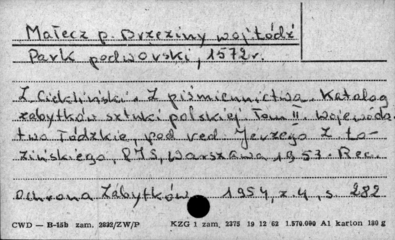 Małecz p. Brzeziny woj. Łódź
Park podworski, 1572 r.
Z. Ciekliński. Z piśmiennictwa. Katalog
zabytków sztuki polskiej. Tom II. Wojewódz-
two Łódzkie, pod red. Jerzego Z. Ło-
zińskiego, PIS, Warszawa 1953. Rec.
Ochrona Zabytków 1954, z. 4, s. 282
CWD — B-15b zam. 2032/ZW/P KZG 1 zam. 2375 19 12 62 1.570.000 A1 karton 180 g